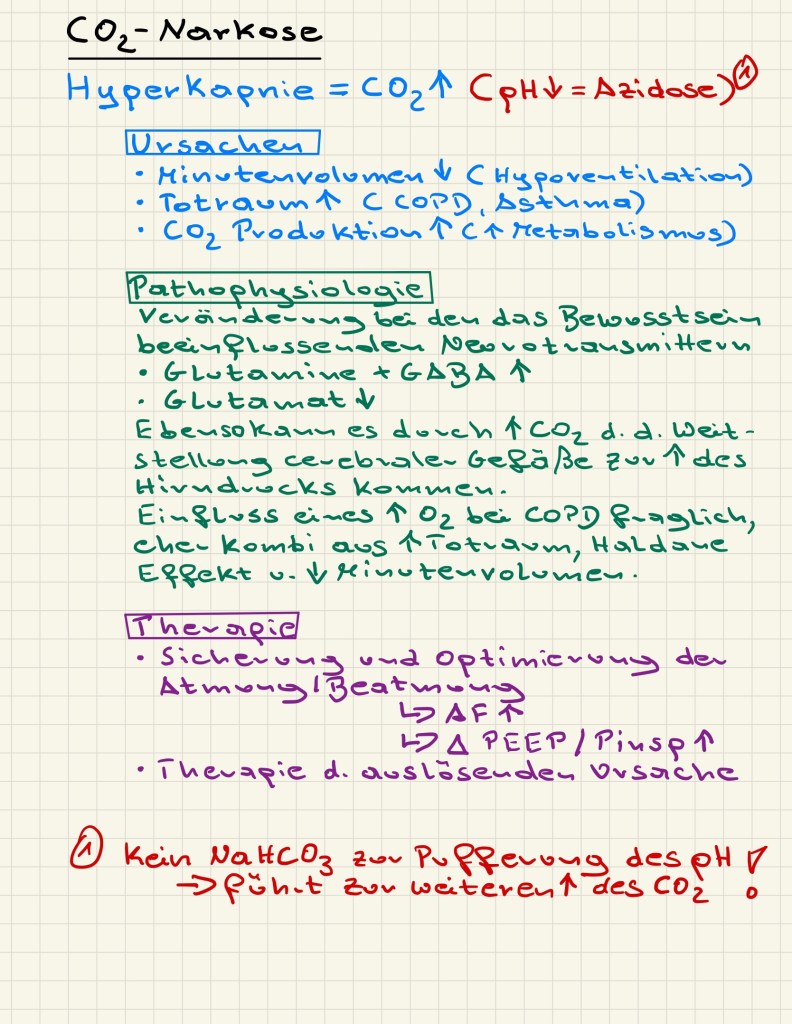 CO₂-Narkose
Hyperkapnie = CO₂↑ (pH↓ = Azidose) ①
Ursachen
• Minutenvolumen ↓ (Hypoventilation)
• Totraum ↑ (COPD, Asthma)
• CO₂ Produktion ↑ (↑ Metabolismus)
Pathophysiologie
Veränderung bei den das Bewusstsein
beeinflussenden Neurotransmittern
• Glutamine + GABA ↑
• Glutamat ↓
Ebenso kann es durch ↑ CO₂ d. d. Weit-
stellung cerebraler Gefäße zur ↑ des
Hirndrucks kommen.
Einfluss eines ↑ O₂ bei COPD fraglich,
eher Kombi aus ↑ Totraum, Haldane
Effekt u. ↓ Minutenvolumen.
Therapie
• Sicherung und Optimierung der
Atmung/Beatmung
↳ AF ↑
↳ Δ PEEP/Pinsp ↑
• Therapie d. auslösenden Ursache
① Kein NaHCO₃ zur Pufferung des pH !
→ führt zur weiteren ↑ des CO₂